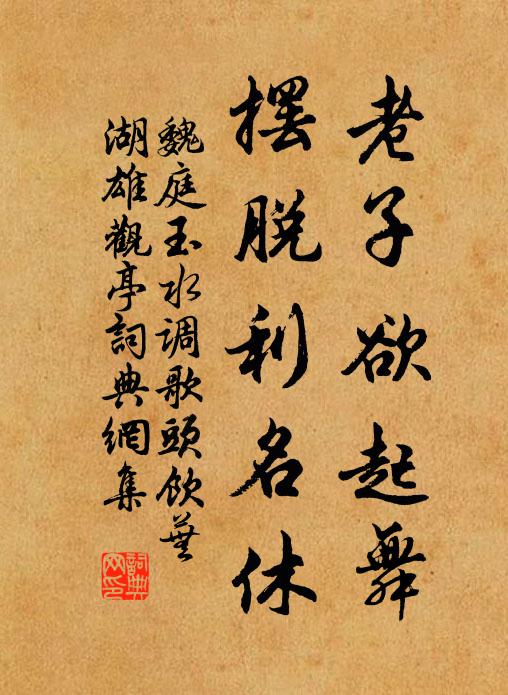 老子欲起舞
擺脫利名休
魏庭玉水调歌頭飲蕪
湖雄觀亭詞典網集
詞典
网印